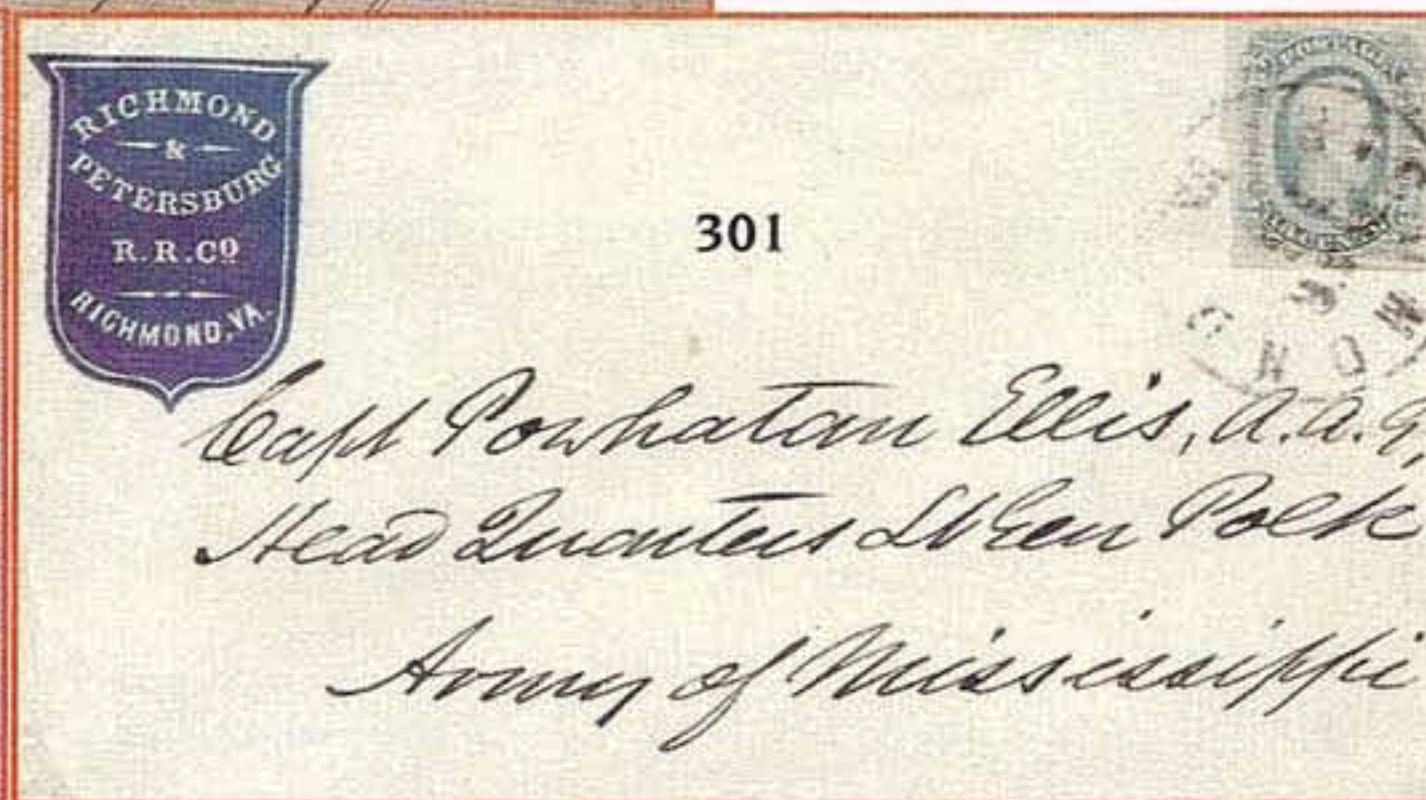 RICHMOND
&
PETERSBURG
R.R.CO
RICHMOND, VA.
301
Capt Powhatan Ellis, A.A.G,
Head Quarters Lt Gen Polk
Army of Mississippi